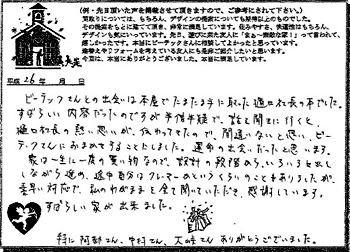 (例・先日頂いた声を掲載させて頂きますので、ご参考にされて下さい。)
間取りについては、もちろん、デザインの提案についても期待以上のものでした。
その後家もひとに建て頂き、非常に満足しています。住みやすさ、快適性はもちろん、
デザインも気にいっています。先日、遊びに来た友人に「まぁ～素敵な家!」って言われて、
嬉しかったです。本当にビーテックさんに相談してよかったと思っています。
今回は、本当にありがとうございました。本当に満足しています。
平成 26 年 月 日
ビーテックさんとの出会いは本屋でたまたま手に取った樋口社長の本でした。
すばらしい内容だったのですが半信半疑で、話を聞きに行くと、
樋口社長の熱い思いが、伝わってきたので、間違いないと思い、ビー
テックさんにおまかせすることにしました。運命の出会いだったと思います。
家は一生に一度の買い物なので、設計の段階から、いろいろを出し
しながら進め、途中自分はクレーマーかもというくらいのこともありましたが、
素早い対応で、私のわがままを全て聞いていただき、感謝しています。
すばらしい家が出来ました。
特に 阿部さん、中村さん、大崎さん ありがとうございました。